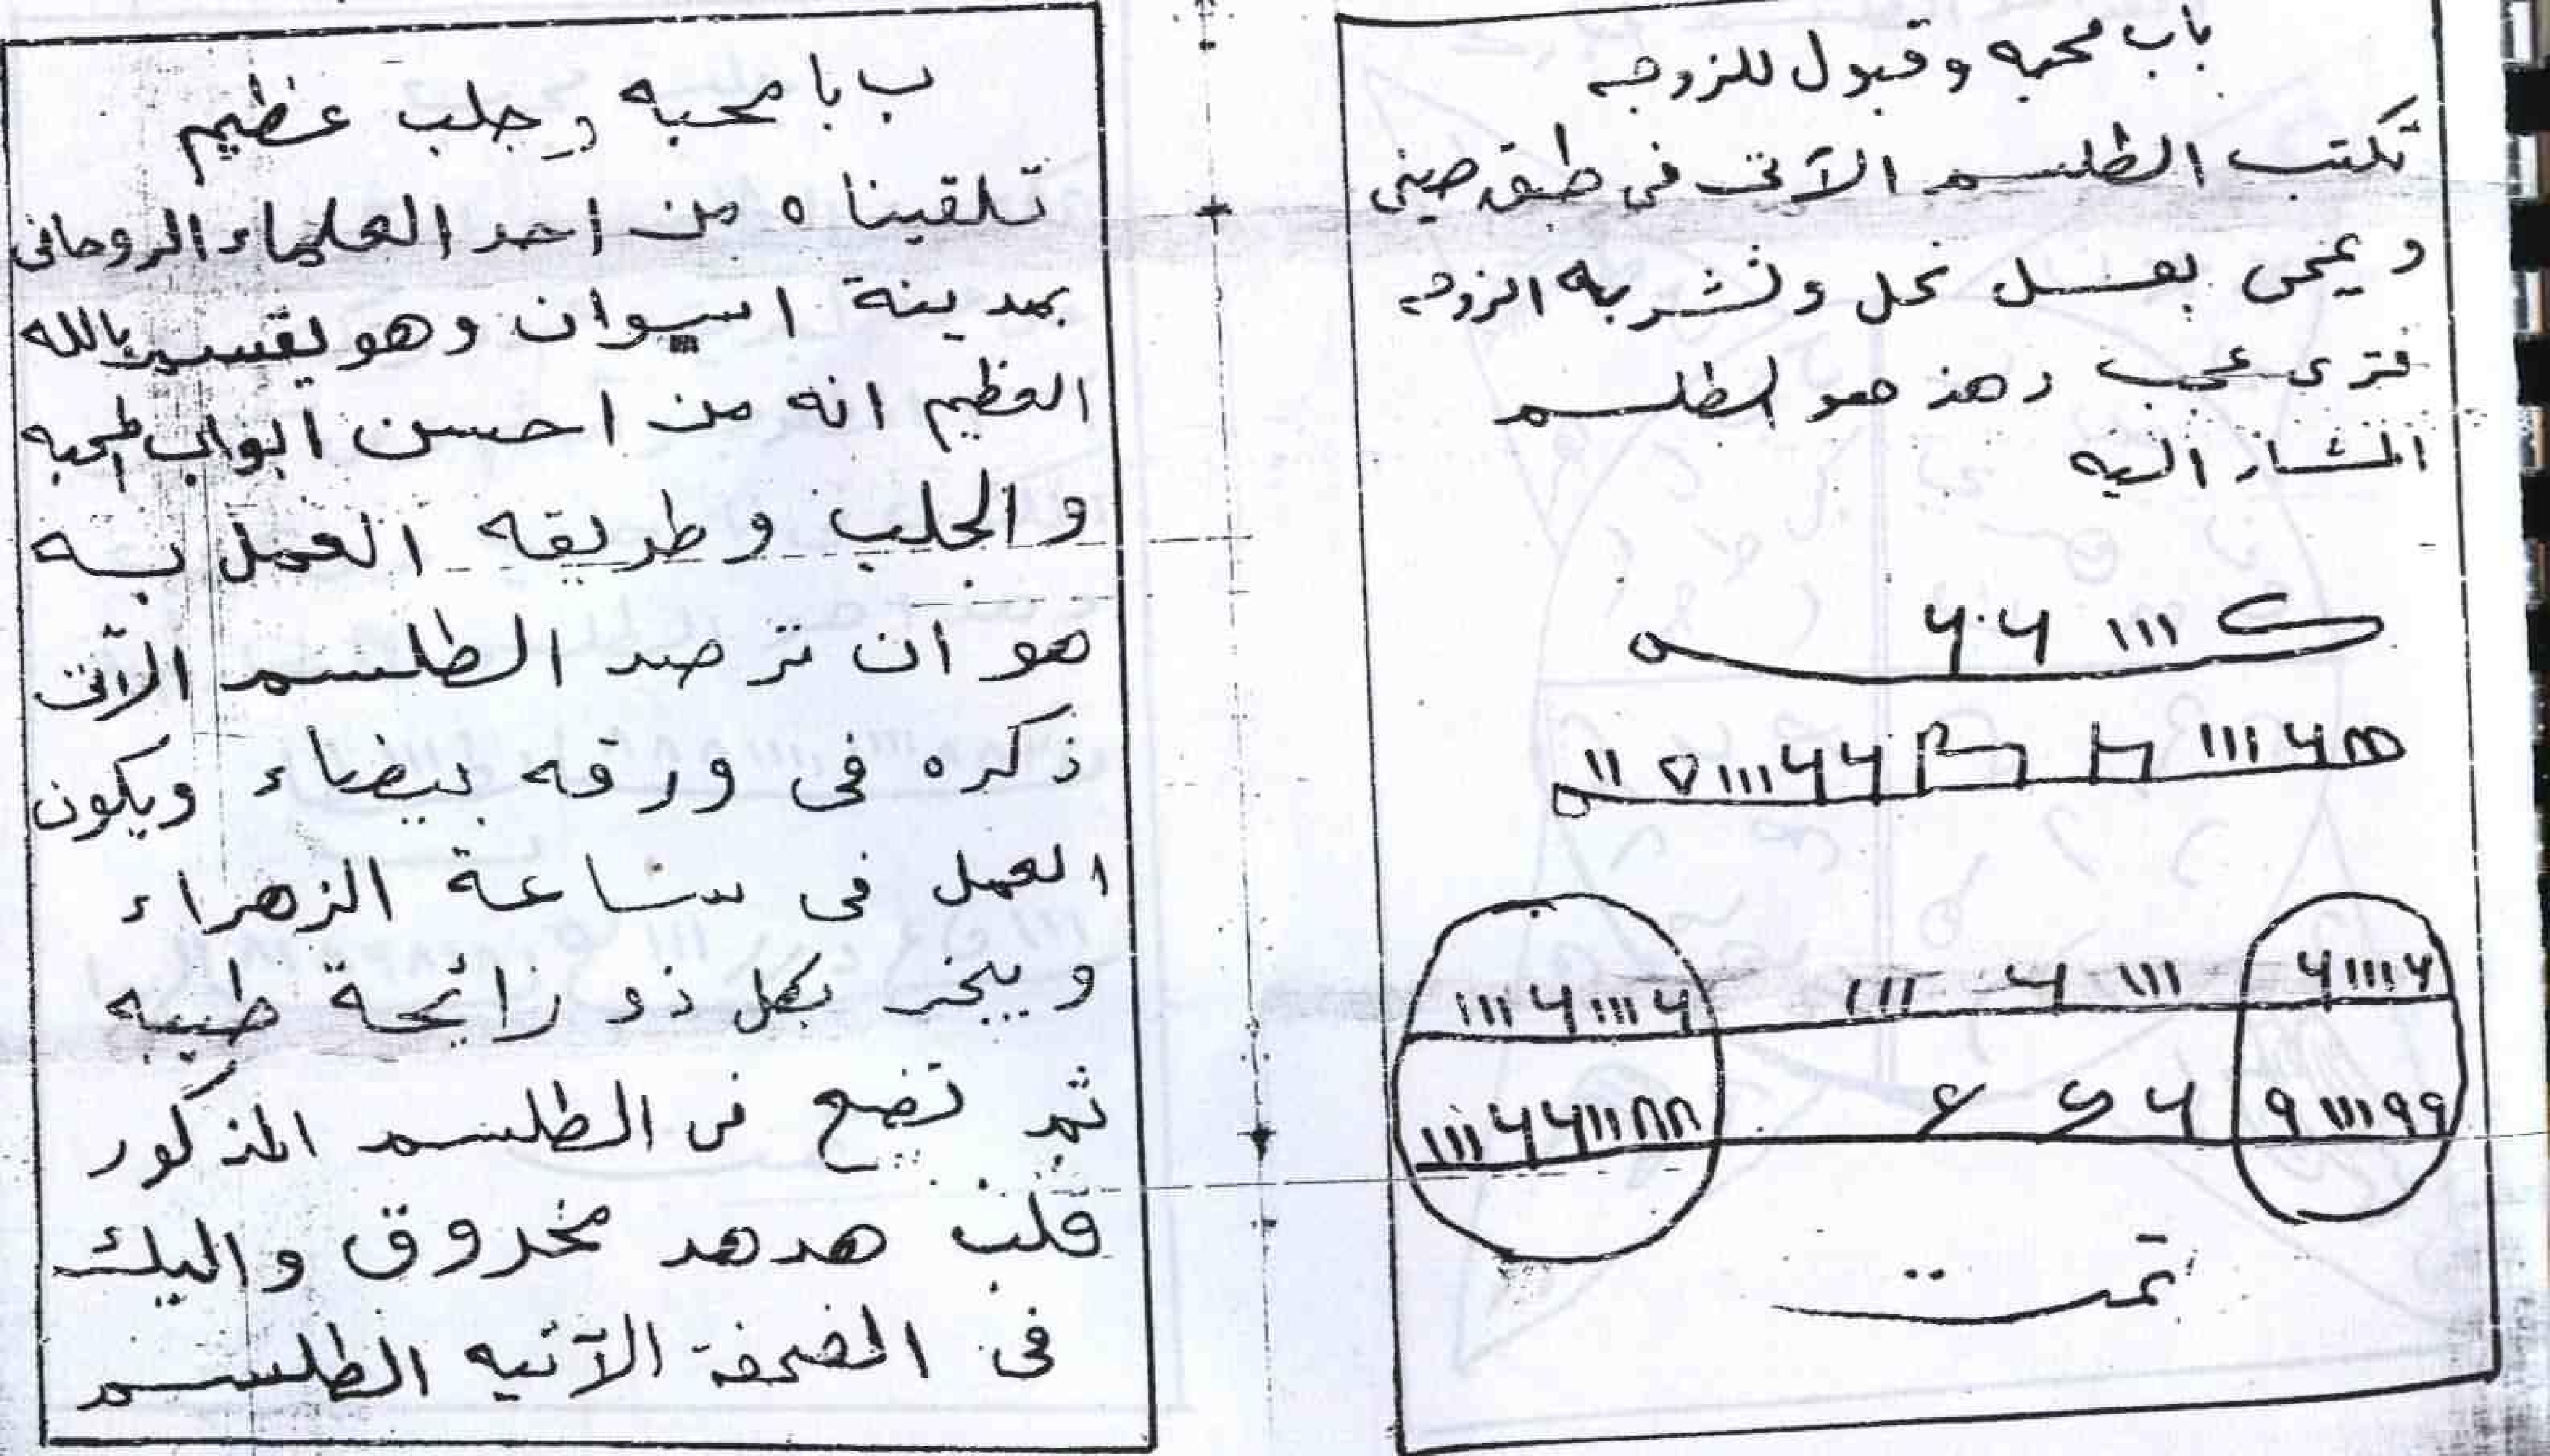 باب محبه وقبول للزوجه
تكتب الطلسم الآتى فى طبق صينى
ويمحى بعسل نحل وتشربه الزوجه
فترى عجب وهذ هو الطلسم
المشار اليه
تمت
ب با محبه وجلب عظيم
تلقيناه من احد العلماء الروحانى
بمدينة اسوان وهو يقسم بالله
العظيم انه من احسن ابواب المحبه
والجلب وطريقه العمل به
هو ان ترصد الطلسم الآتى
ذكره فى ورقه بيضاء ويكون
العمل فى ساعة الزهراء
ويبخر بكل ذو رائحة طيبه
ثم تضع فى الطلسم المذكور
قلب هدهد مخروق واليك
فى الصحفة الآتيه الطلسم